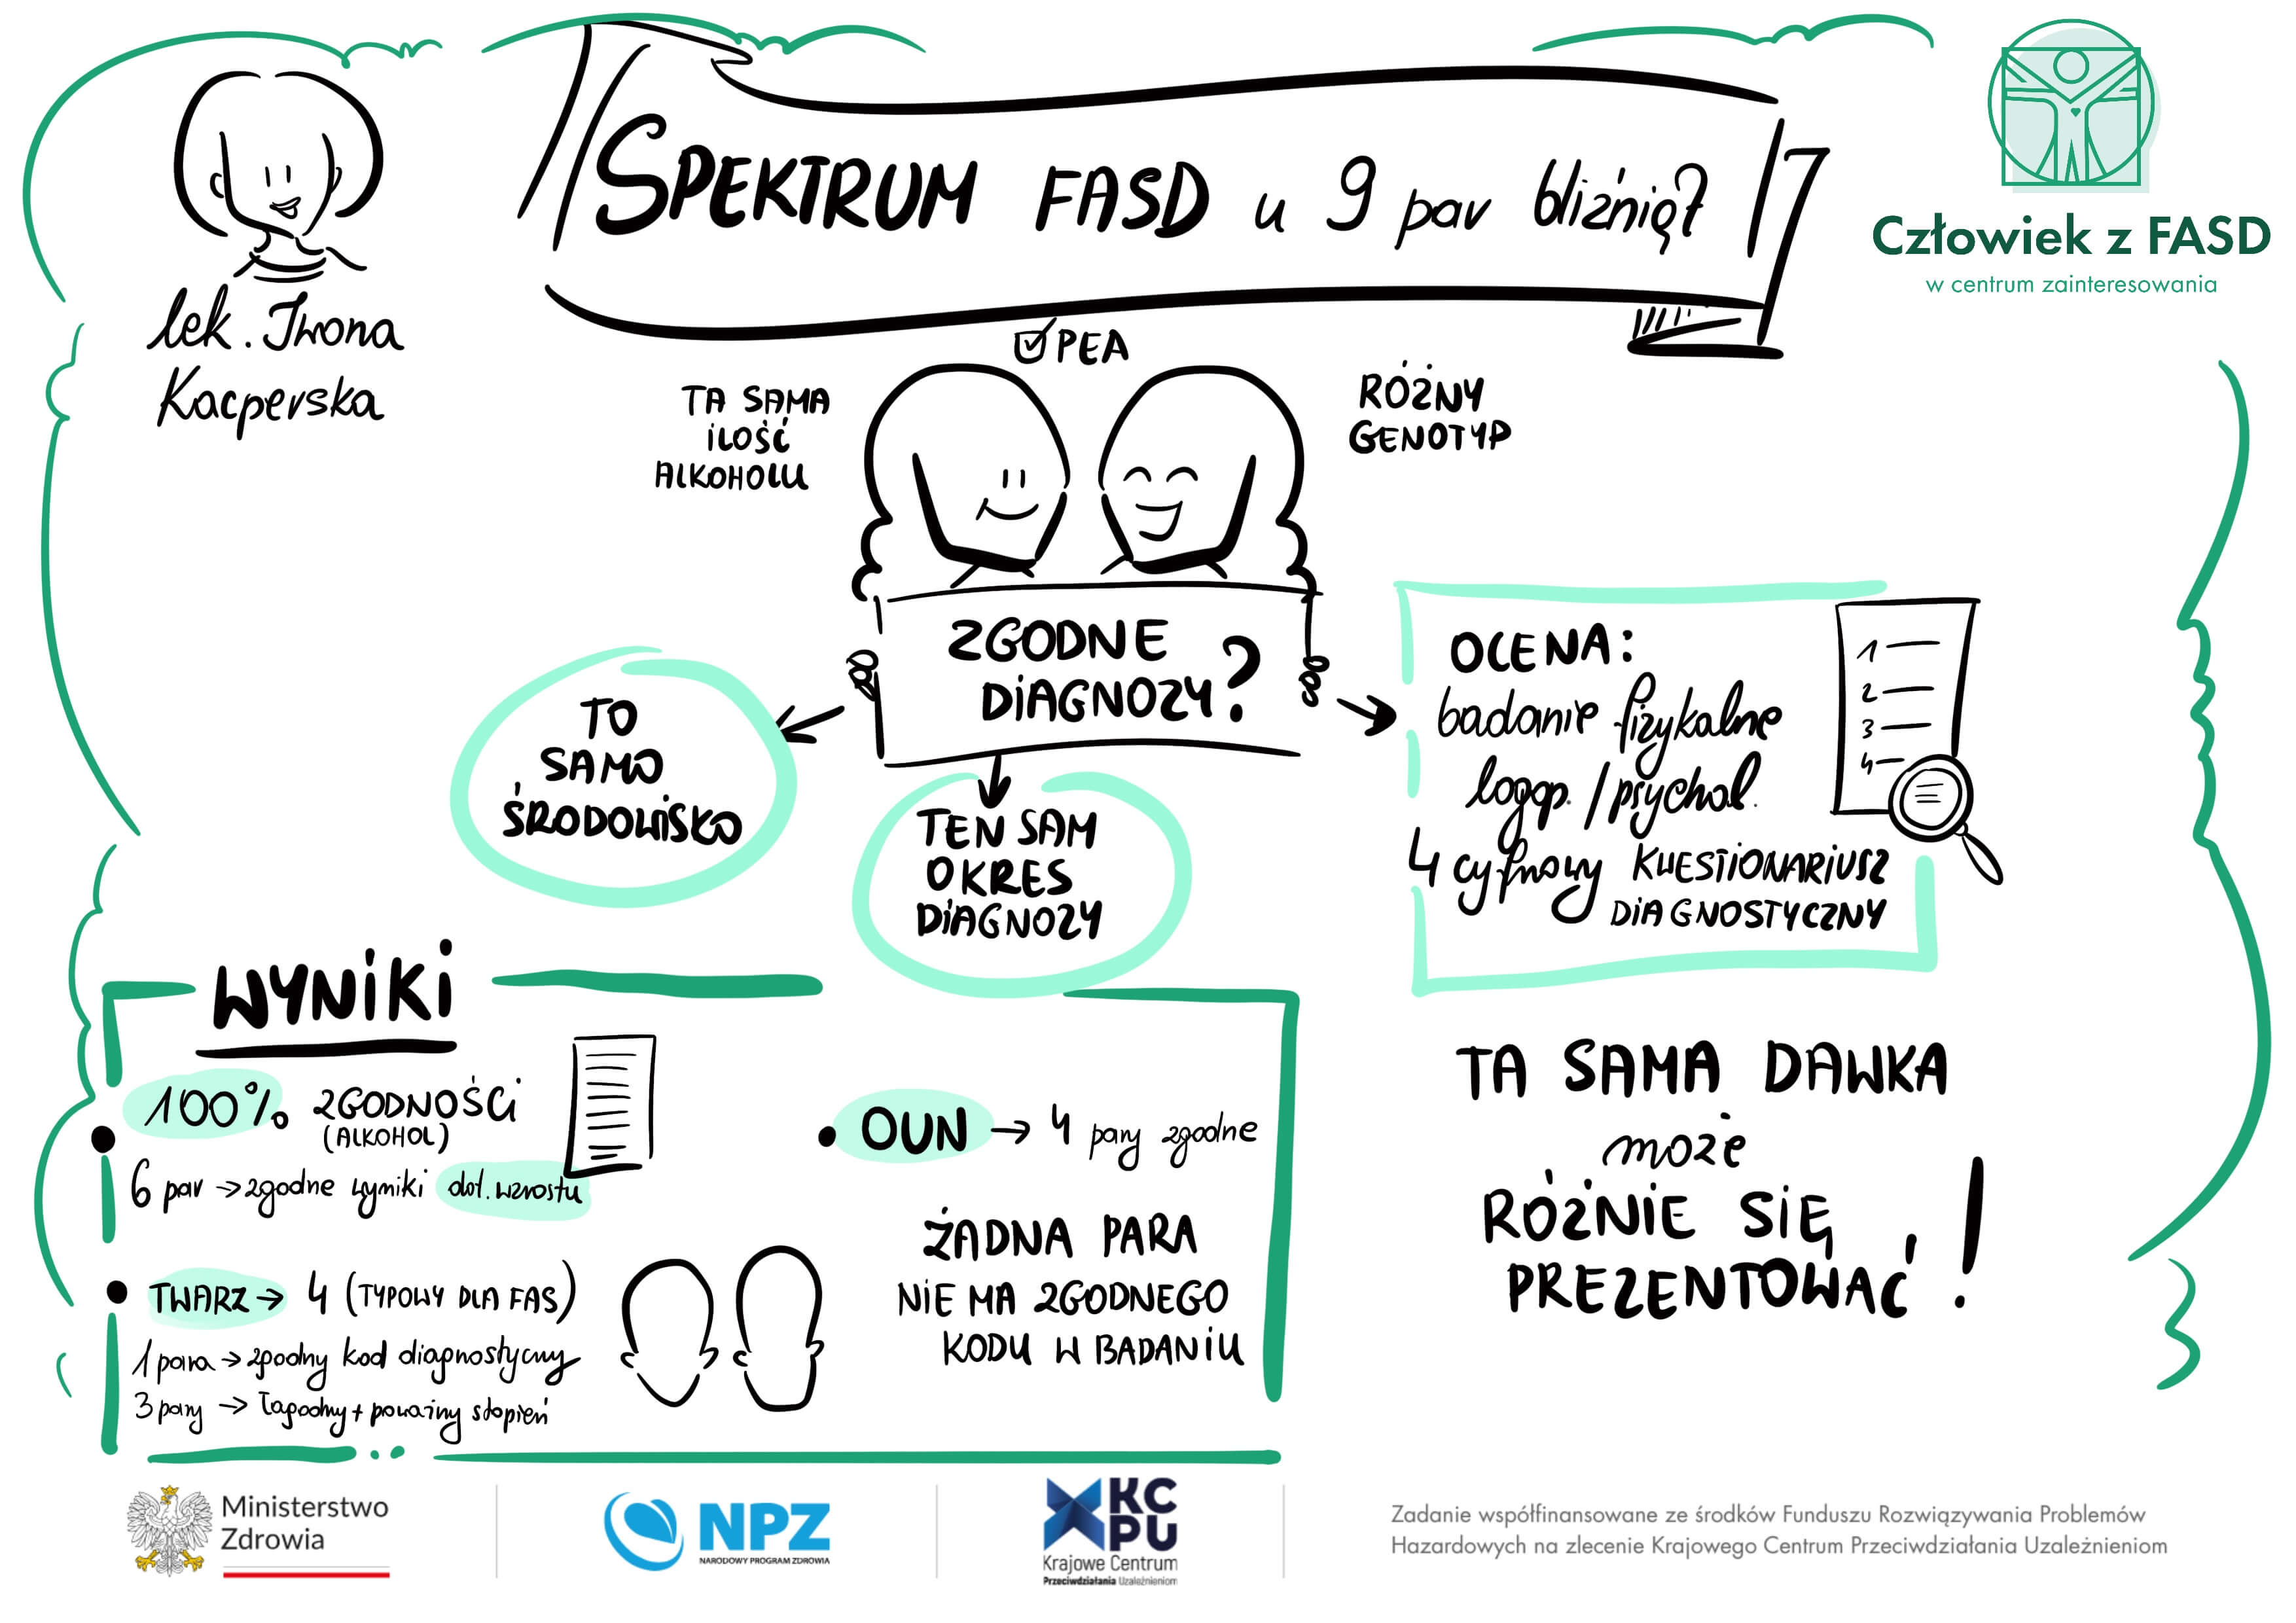 SPEKTRUM FASD u 9 par bliźniąt
Człowiek z FASD
w centrum zainteresowania
lek. Iwona
Kacperska
PEA
TA SAMA
ILOŚĆ
ALKOHOLU
RÓŻNY
GENOTYP
ZGODNE
DIAGNOZY?
TO
SAMO
ŚRODOWISKO
TEN SAM
OKRES
DIAGNOZY
OCENA:
badanie fizykalne
logop. / psychol.
4 cyfrowy KWESTIONARIUSZ
DIAGNOSTYCZNY
1
2
3
4
WYNIKI
100% ZGODNOŚCI
(ALKOHOL)
6 par → zgodne wyniki dot. wzrostu
TWARZ → 4 (TYPOWY DLA FAS)
1 para → zgodny kod diagnostyczny
3 pary → łagodny + poważny stopień
OUN → 4 pary zgodne
ŻADNA PARA
NIE MA ZGODNEGO
KODU W BADANIU
TA SAMA DAWKA
może
RÓŻNIE SIĘ
PREZENTOWAĆ!
Ministerstwo
Zdrowia
NPZ
NARODOWY PROGRAM ZDROWIA
KC
PU
Krajowe Centrum
Przeciwdziałania Uzależnieniom
Zadanie współfinansowane ze środków Funduszu Rozwiązywania Problemów
Hazardowych na zlecenie Krajowego Centrum Przeciwdziałania Uzależnieniom